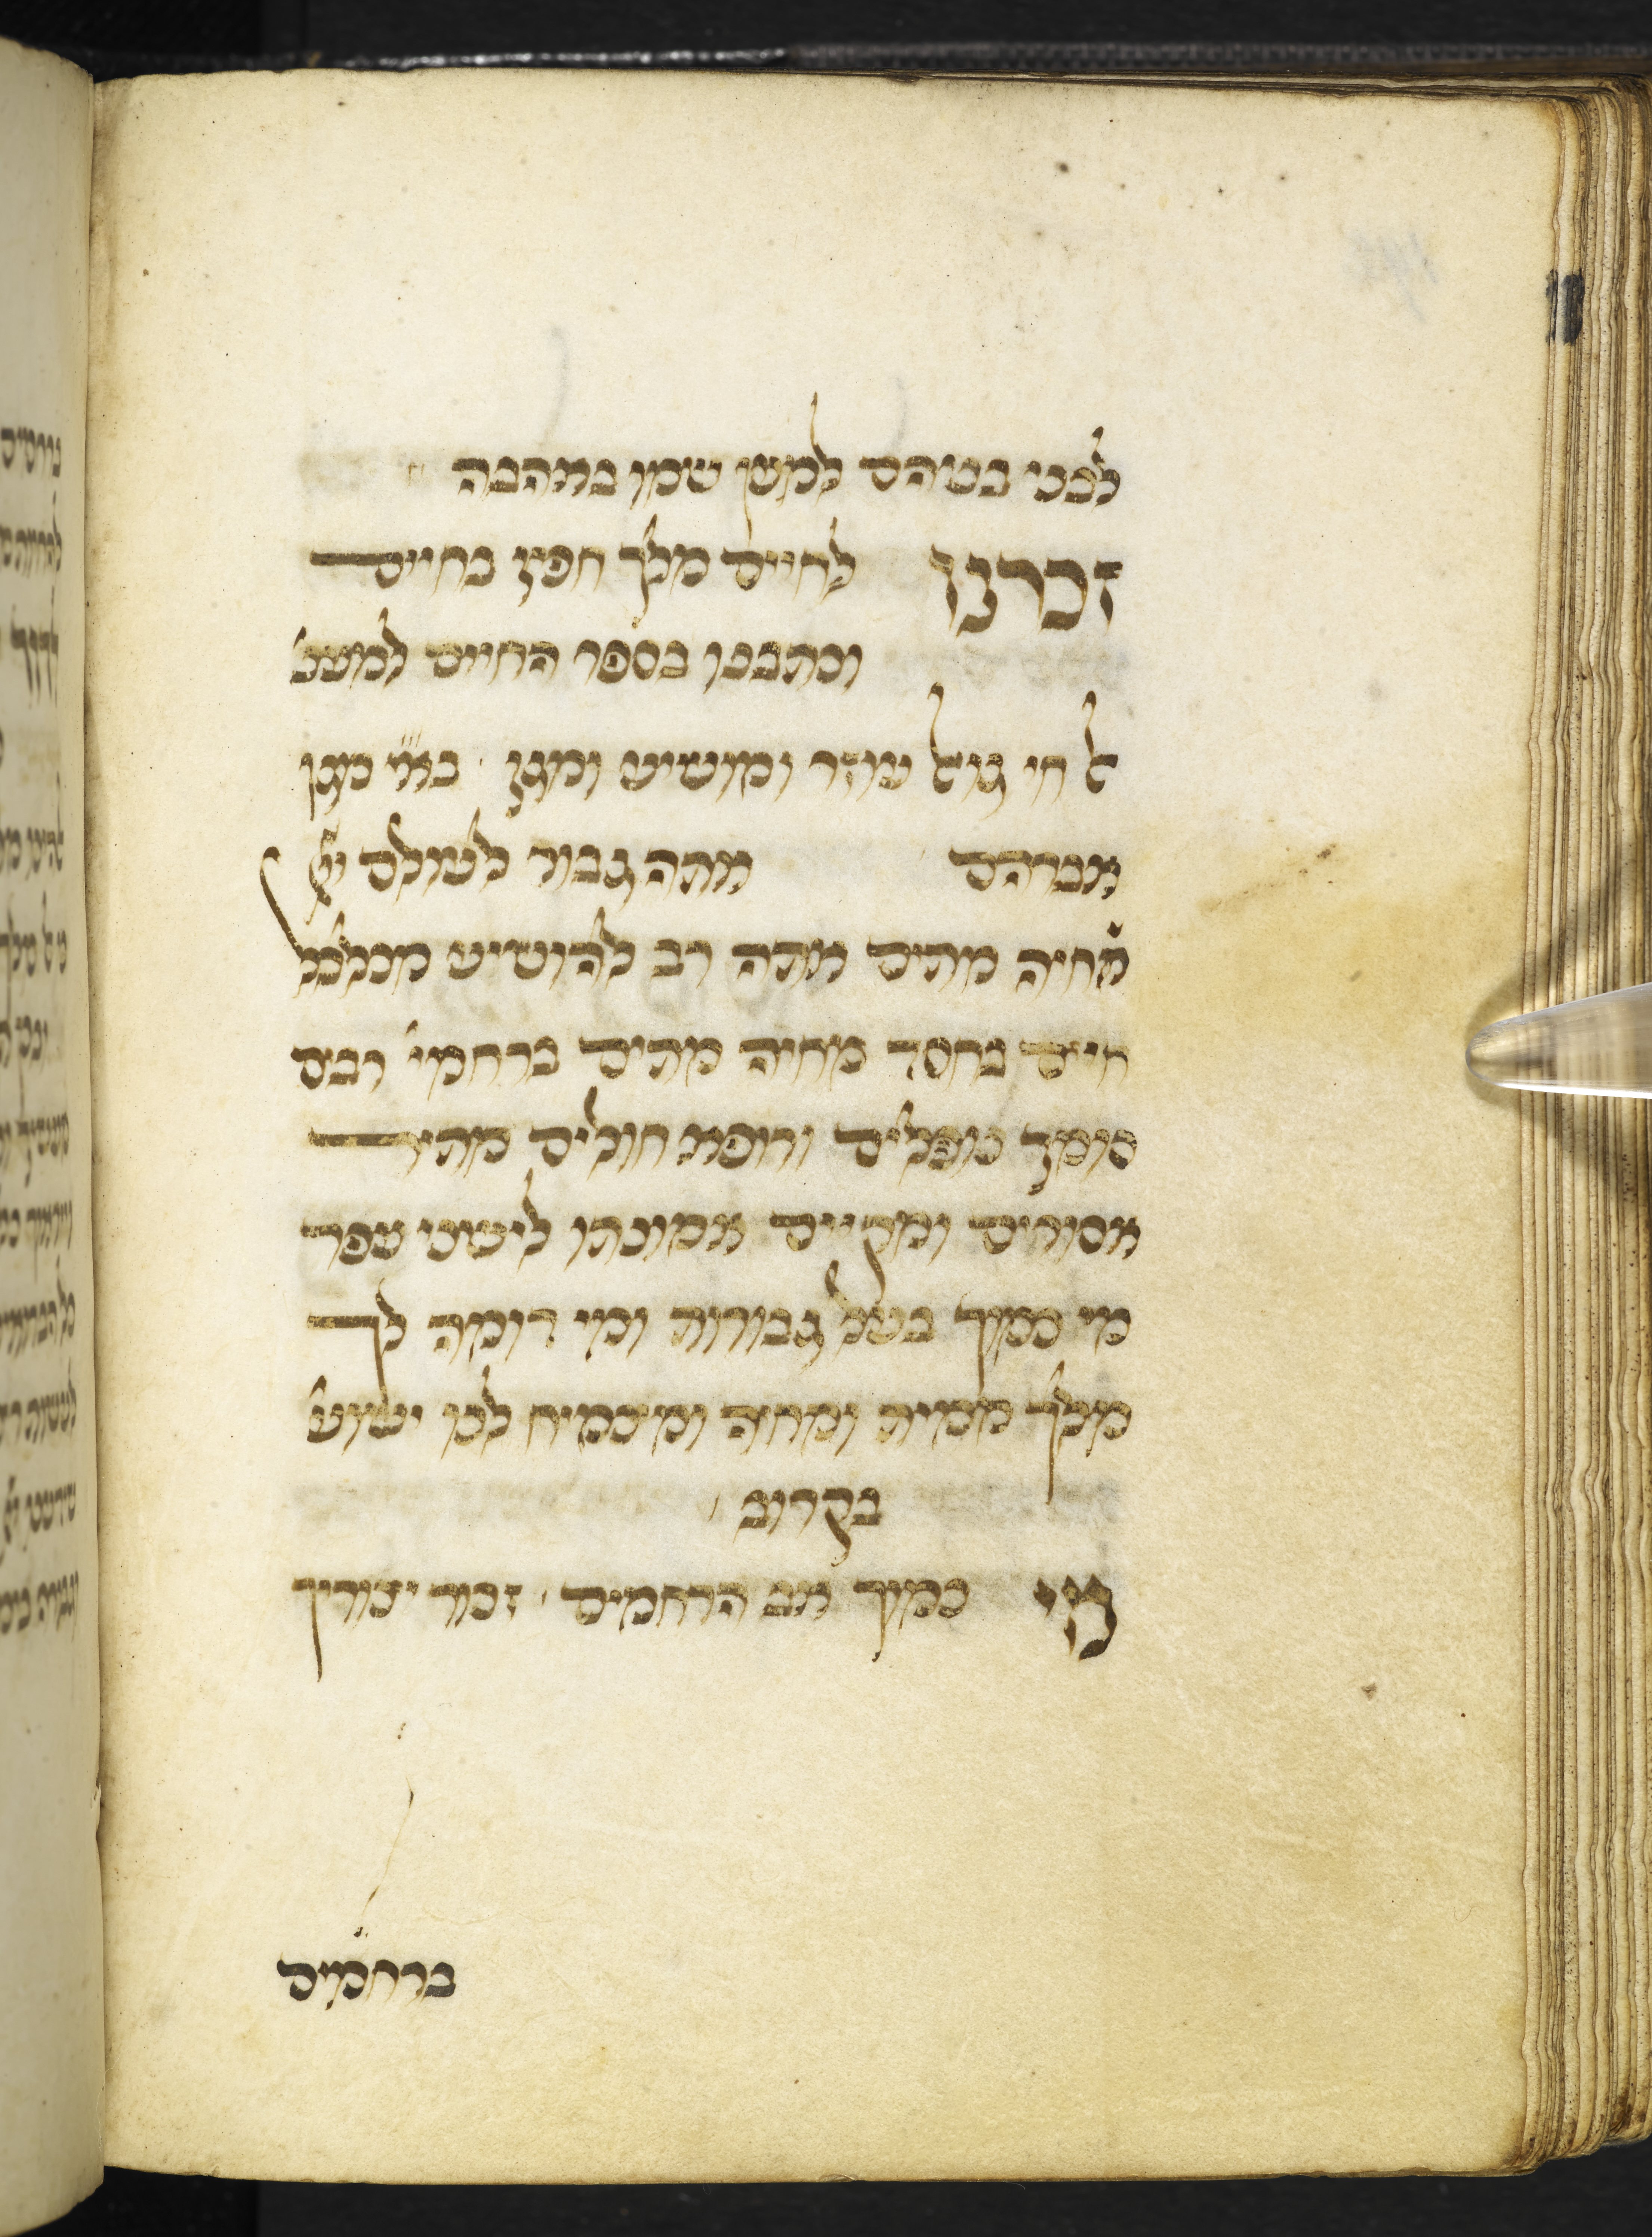 לבני בניהם למען שמו באהבה
זכרנו לחיים מלך חפץ בחיים
וכתבנו בספר החיים למענ׳
אל חי גואל עוזר ומושיע ומגן · בא״י מגן
אברהם אתה גבור לעולם י״י
מחיה מתים אתה רב להושיע מכלכל
חיים בחסד מחיה מתים ברחמי׳ רבים
סומך נופלים ורופא חולים מתיר
אסירים ומקיים אמונתו לישני עפר
מי כמוך בעל גבורות ומי דומה לך
מלך ממית ומחיה ומצמיח לנו ישוע׳
בקרוב
מי כמוך אב הרחמים · זכור יצוריך
ברחמים